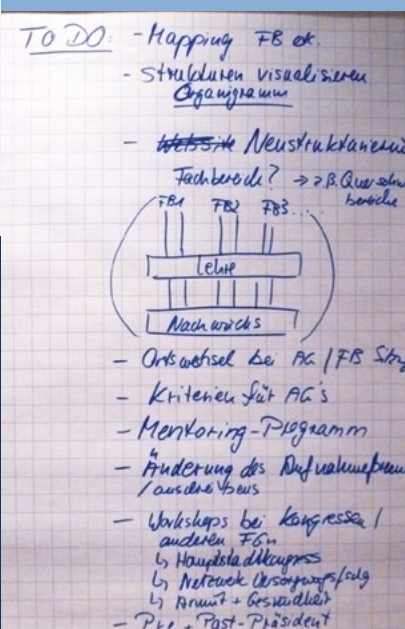 TO DO: - Mapping FB ok.
- Strukturen visualisieren
Organigramm
- Website Neustrukturierun
Fachbereich? → z.B. Querschni
bereiche
FB1 FB2 FB3...
Lehre
Nachwuchs
- Ortswechsel bei AG / FB Sitzg
- Kriterien für AG's
- Mentoring-Programm
- Änderung des
/anschreibens
- Workshops bei Kongressen /
anderen FGn
↳ Hauptstadtkongress
↳ Netzwerk
↳ Armut + Gesundheit
- Pre + Past-Präsident